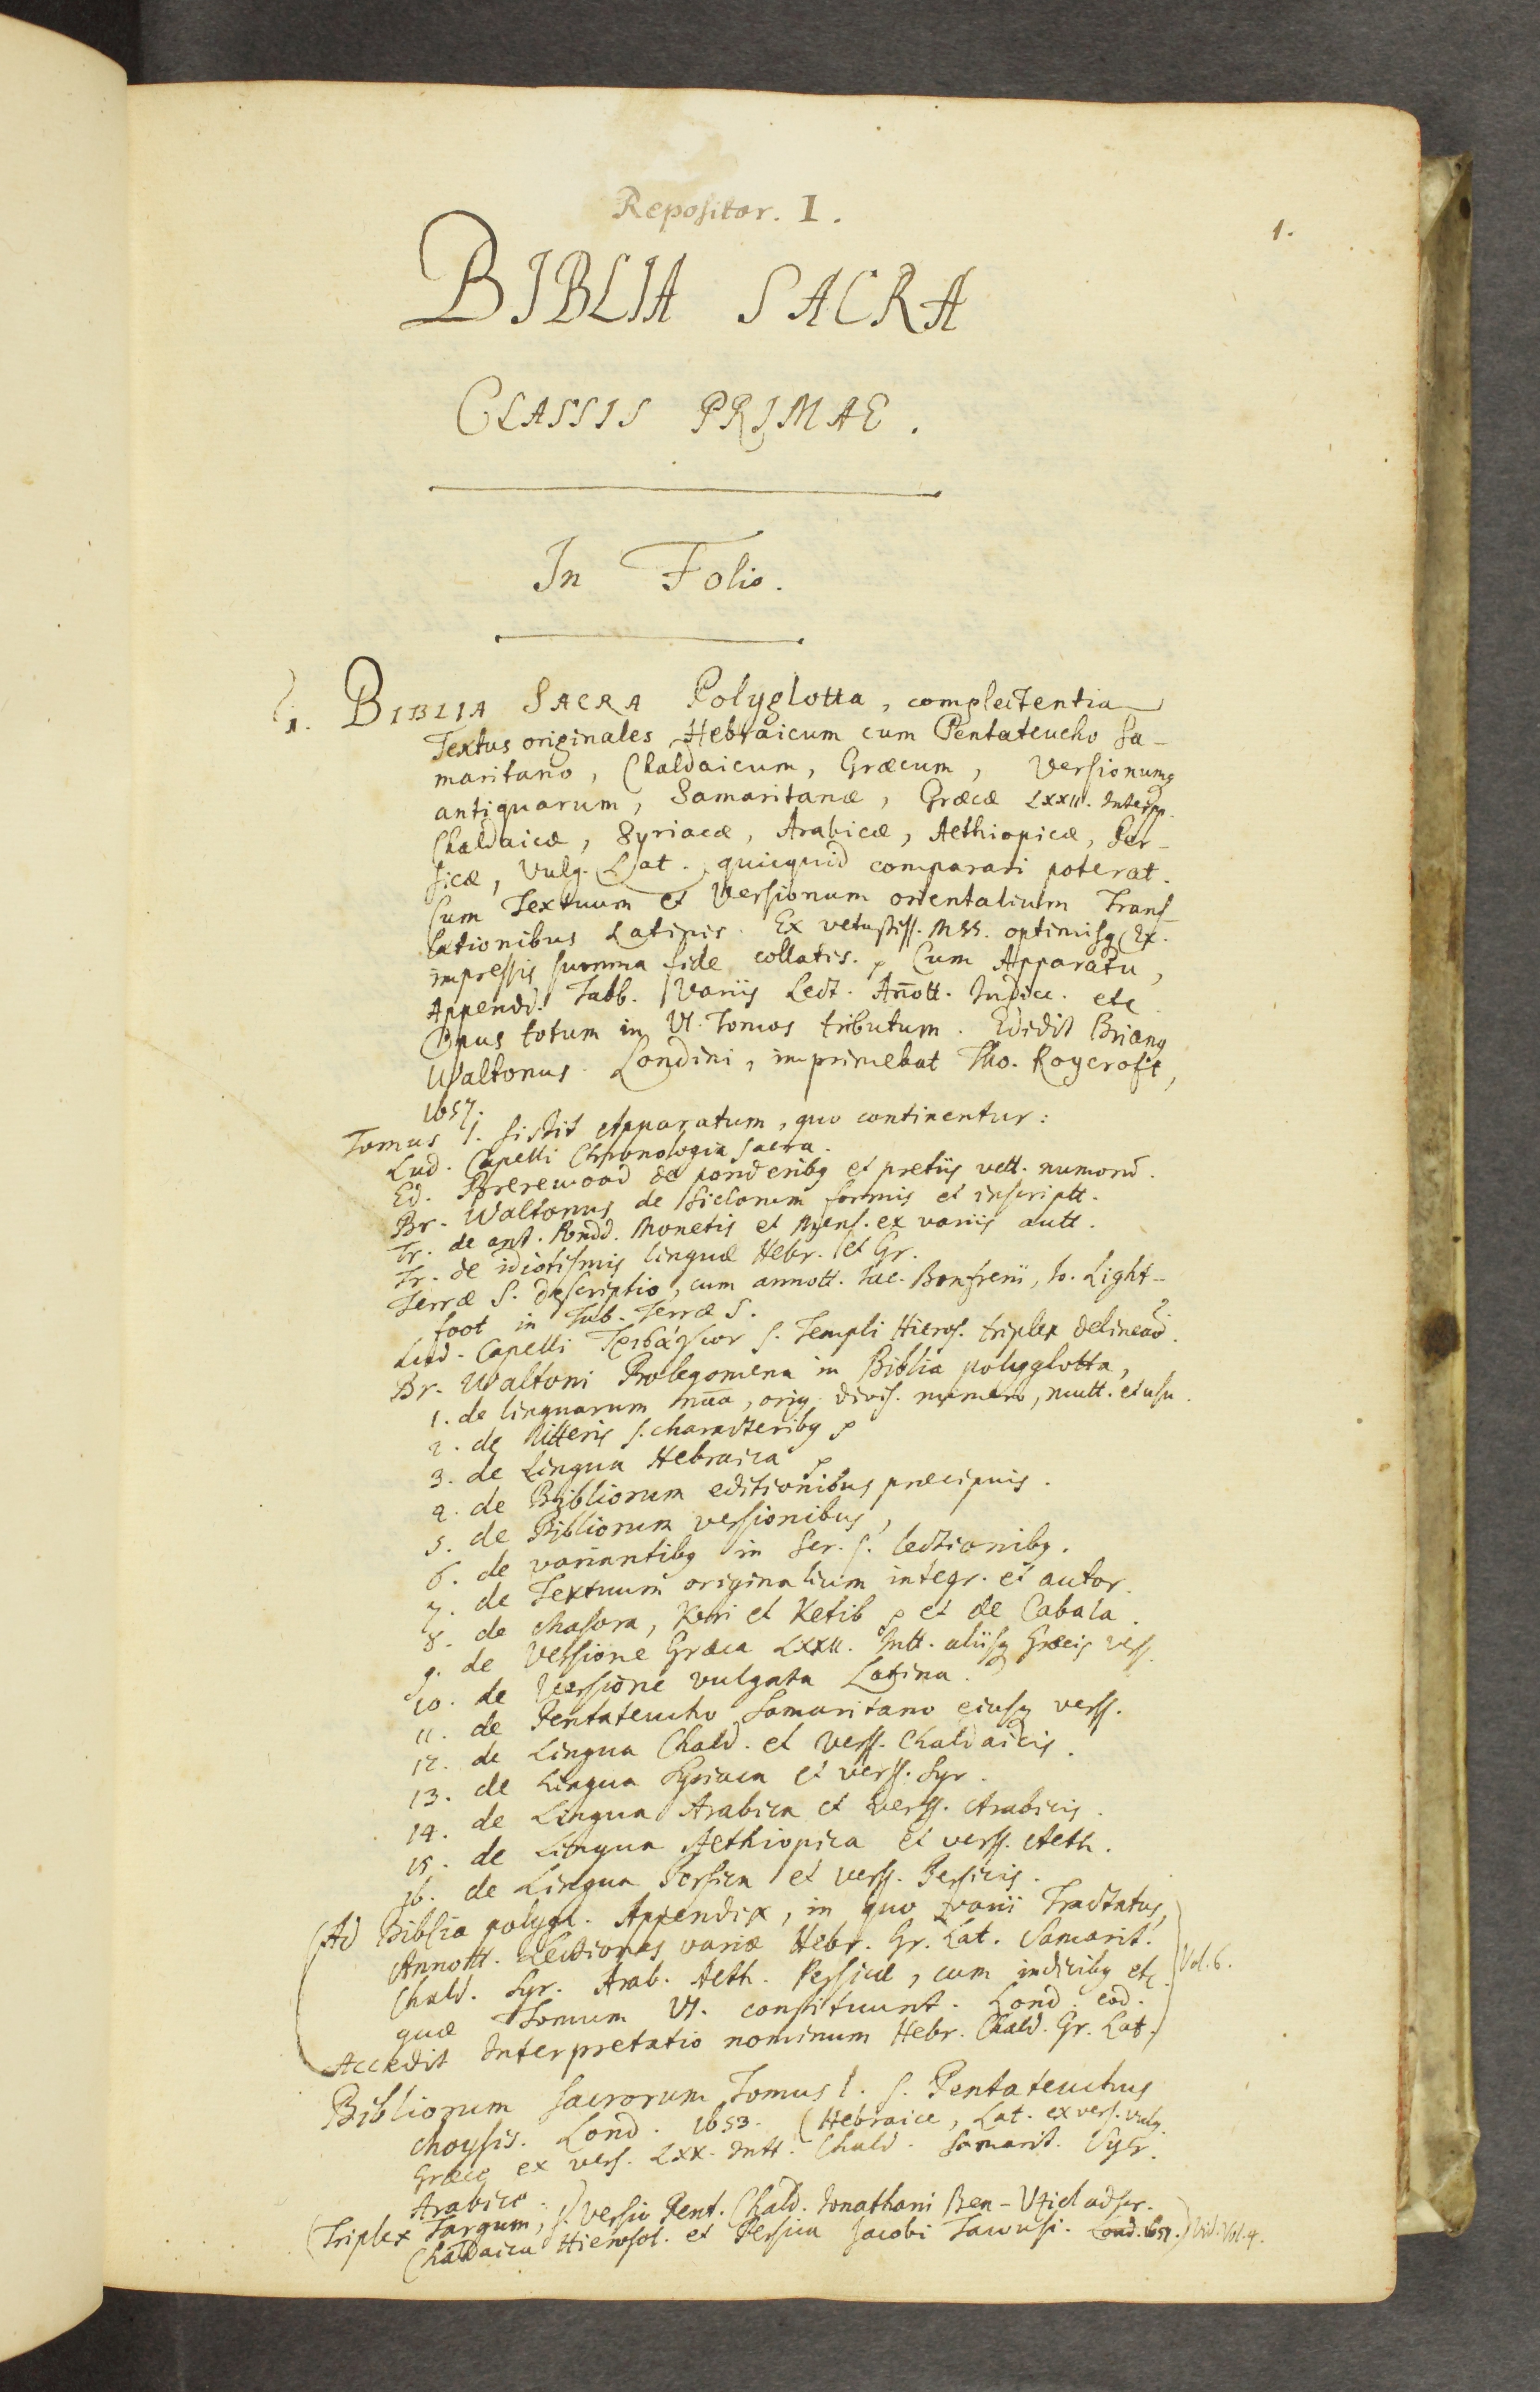 Repositor. I.
1.
BIBLIA SACRA
CLASSIS PRIMAE.
In Folio.
1. BIBLIA SACRA Polyglotta, complectentia
Textus originales Hebraicum cum Pentateucho Sa-
maritano, Chaldaicum, Græcum, Versionumq
antiquarum, Samaritanæ, Græcæ LXXII. Interpp.
Chaldaicæ, Syriacæ, Arabicæ, Aethiopicæ, Per-
sicæ, Vulg. Lat. quicquid comparari poterat.
Cum Textuum et Versionum orientalium Trans-
lationibus Latinis. Ex vetustiss. MSS. optimisq Ex.
impressis summa fide collatis. Cum Apparatu,
Appendd. Tabb. Variis Lect. Añott. Indicc. etc
Opus totum in VI. Tomos tributum. Edidit Brianq
Waltonus. Londini, imprimebat Tho. Roycroft,
1657.
Tomus I. sistit Apparatum, quo continentur:
Lud. Capelli Chronologia sacra.
Ed. Brerewood de ponderibq et pretiis vett. numorũ.
Br. Waltonus de Siclorum formis et inscriptt.
Tr. de ant. Pondd. Monetis et Mens. ex variis autt.
Tr. de idiotismis linguæ Hebr. et Gr.
Terræ S. descriptio, cum annott. Jac. Bonfrerii, Jo. Light-
foot in Tab. Terræ S.
Lud. Capelli Τρισάγιον s. Templi Hieros. triplex delineaõ.
Br. Waltoni Prolegomena in Biblia polyglotta,
1. de linguarum nãa, orig. divis. numero, mutt. et usu.
2. de litteris s. characteribq
3. de Lingua Hebraica
4. de Bibliorum editionibus præcipuis.
5. de Bibliorum versionibus,
6. de variantibq in Scr. S. lectionibq.
7. de Textuum originalium integr. et autor.
8. de Masora, Keri et Ketib et de Cabala.
9. de Versione Græca LXXII. Intt. aliisq Græcis verss.
10. de Versione vulgata Latina.
11. de Pentateucho Samaritano eiusq verss.
12. de Lingua Chald. et verss. Chaldaicis.
13. de Lingua Syriaca et verss. Syr.
14. de Lingua Arabica et verss. Arabicis.
15. de Lingua Aethiopica et verss. Aeth.
16. de Lingua Persica et verss. Persicis.
(Ad Biblia polygl. Appendix, in quo varii Tractatus,
Annott. Lectiones variæ Hebr. Gr. Lat. Samarit.
Chald. Syr. Arab. Aeth. Persicæ, cum indicibq etc.
quæ Tomum VI. constituunt. Lond. eod.
Accedit Interpretatio nominum Hebr. Chald. Gr. Lat.)
Vol. 6.
Bibliorum sacrorum Tomus I. s. Pentateuchus
Moysis. Lond. 1653. (Hebraice, Lat. ex vers. vulg.
Græce ex vers. LXX. Intt. Chald. Samarit. Syr.
Arabice.)
(Triplex Targum, s. versio Pent. Chald. Jonathani Ben-Uziel adscr.
Chaldaica Hierosol. et Persica Jacobi Tawusi. Lond. 1657.) Vid. Vol. 4.